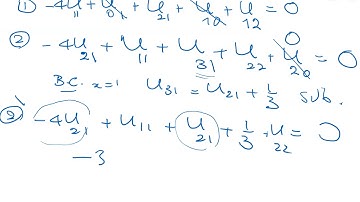 ① -4U₁₁ + U₀₁ + U₂₁ + U₁₀ + U₁₂ = 0
② -4U₂₁ + U₁₁ + U₃₁ + U₂₂ + U₂₀ = 0
0
B.C. x=1 U₃₁ = U₂₁ + 1/3 sub.
② -4U₂₁ + U₁₁ + U₂₁ + 1/3 + U₂₂ = 0
-3